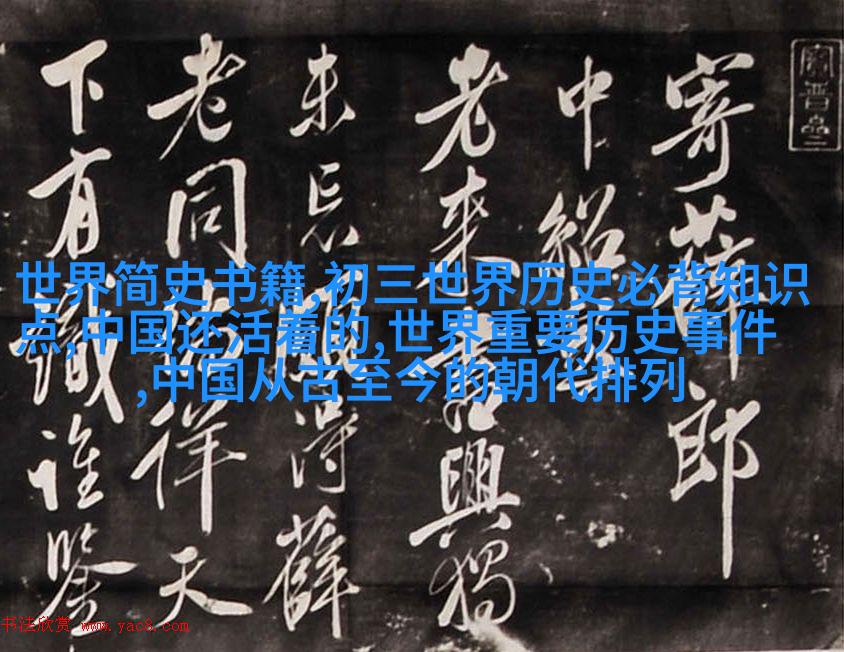 世界简史书籍,初三世界历史必背知识
点,中国还活着的,世界重要历史事件
,中国从古至今的朝代排列
寶晉
寄薛郎
中紹
老來興獨
未忘得薛
老同徉天
下有識誰鑒
书法欣赏 www.yac8.com